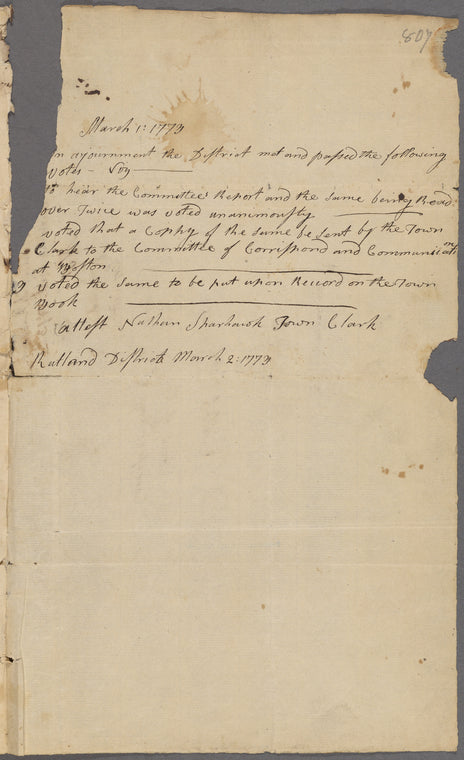 807
March 1: 1773
on ajournment the District met and passed the following
votes - Viz
to hear the Committees Report and the same being Read
over Twice was voted unanemously
voted that a Cophy of the same be sent by the Town
Clark to the Committee of Corrispond and Communicati
at Boston
3 voted the same to be put upon Record on the Town
Book
attest Nathan Sparhawk Town Clark
Rutland District March 2: 1773